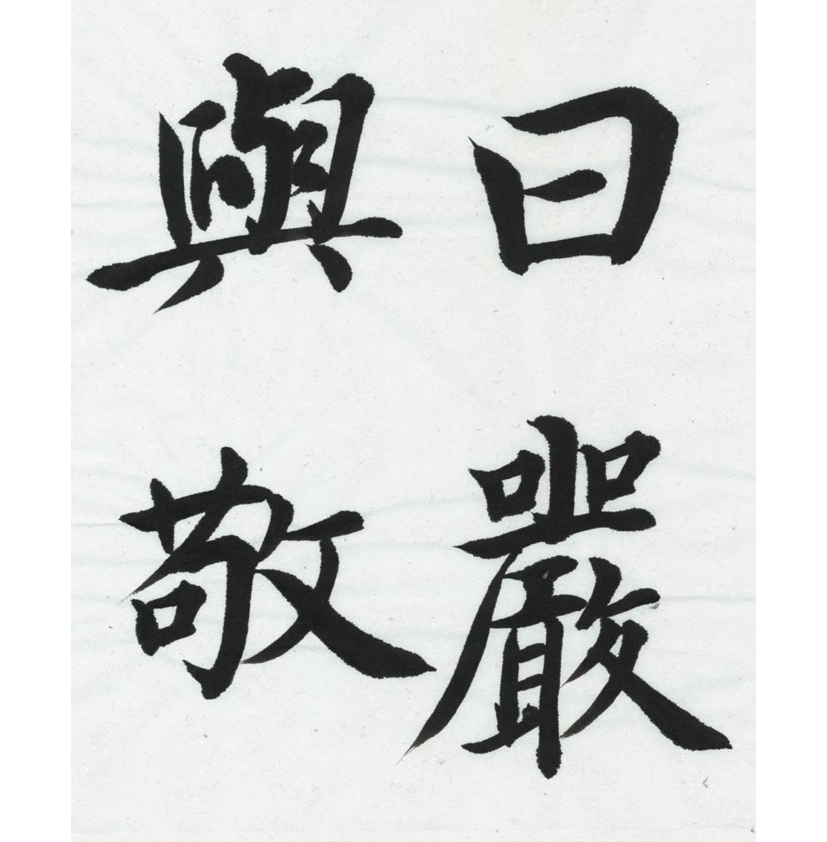 曰嚴
與敬